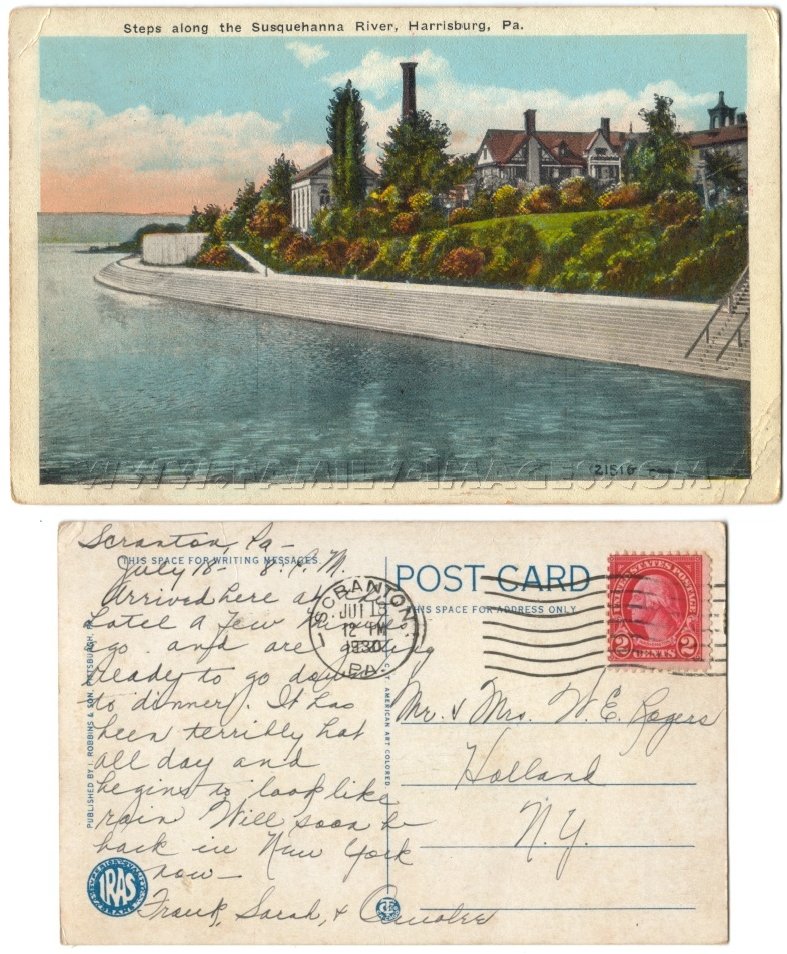 Steps along the Susquehanna River, Harrisburg, Pa.
21516
WWW.FAMILYIMAGES.COM
Scranton, Pa –
THIS SPACE FOR WRITING MESSAGES
July 18 – 8. P.M.
Arrived here at
hotel a few minutes
ago and are getting
ready to go down
to dinner. It has
been terribly hot
all day and
begins to look like
rain Will soon be
back in New York
now –
Frank, Sarah, +
PUBLISHED BY ROBBINS & SON, PITTSBURGH, PA.
IRAS
C.T. AMERICAN ART COLORED
SCRANTON
JUL 18
12 PM
1930
PA.
POST CARD
THIS SPACE FOR ADDRESS ONLY
UNITED STATES POSTAGE
2 CENTS 2
Mr. & Mrs. W. E. Rogers
Holland
N.Y.